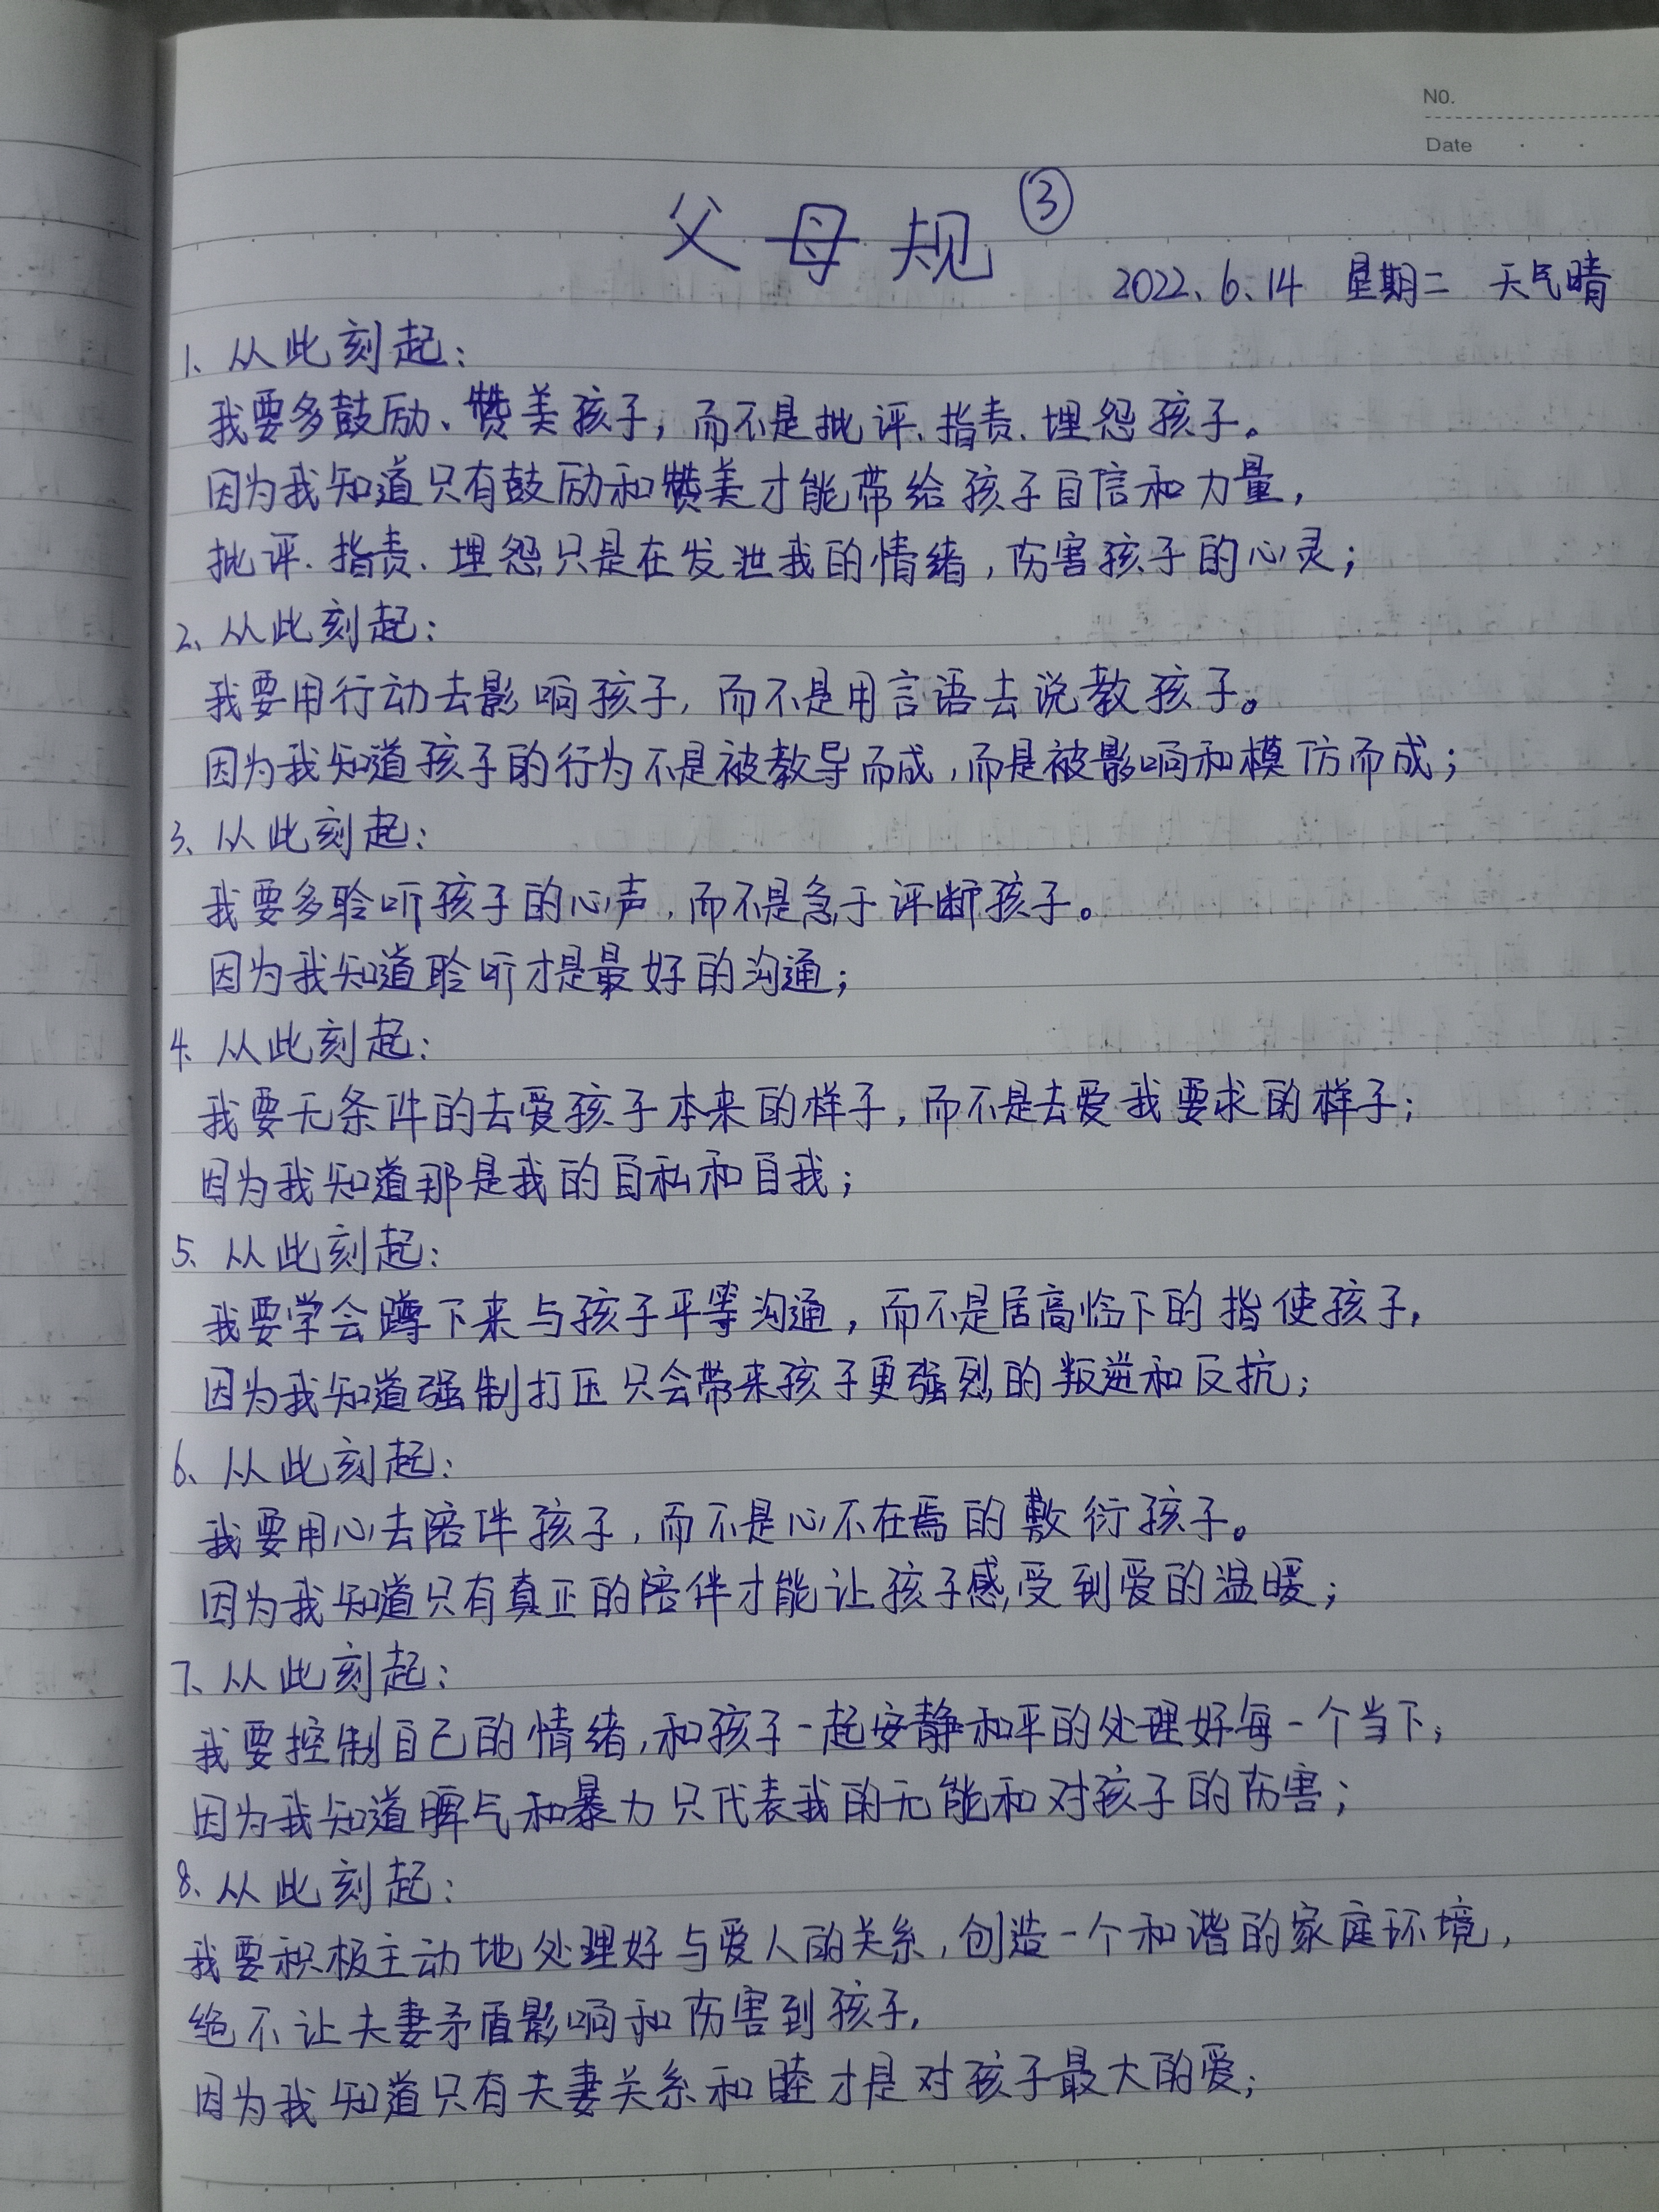 NO.
Date
父母规 ③
2022.6.14 星期二 天气晴
1、从此刻起：
我要多鼓励、赞美孩子，而不是批评、指责、埋怨孩子。
因为我知道只有鼓励和赞美才能带给孩子自信和力量，
批评、指责、埋怨只是在发泄我的情绪，伤害孩子的心灵；
2、从此刻起：
我要用行动去影响孩子，而不是用言语去说教孩子。
因为我知道孩子的行为不是被教导而成，而是被影响和模仿而成；
3、从此刻起：
我要多聆听孩子的心声，而不是急于评断孩子。
因为我知道聆听才是最好的沟通；
4、从此刻起：
我要无条件的去爱孩子本来的样子，而不是去爱我要求的样子；
因为我知道那是我的自私和自我；
5、从此刻起：
我要学会蹲下来与孩子平等沟通，而不是居高临下的指使孩子，
因为我知道强制打压只会带来孩子更强烈的叛逆和反抗；
6、从此刻起：
我要用心去陪伴孩子，而不是心不在焉的敷衍孩子。
因为我知道只有真正的陪伴才能让孩子感受到爱的温暖；
7、从此刻起：
我要控制自己的情绪，和孩子一起安静和平的处理好每一个当下，
因为我知道脾气和暴力只代表我的无能和对孩子的伤害；
8、从此刻起：
我要积极主动地处理好与爱人的关系，创造一个和谐的家庭环境，
绝不让夫妻矛盾影响和伤害到孩子，
因为我知道只有夫妻关系和睦才是对孩子最大的爱；